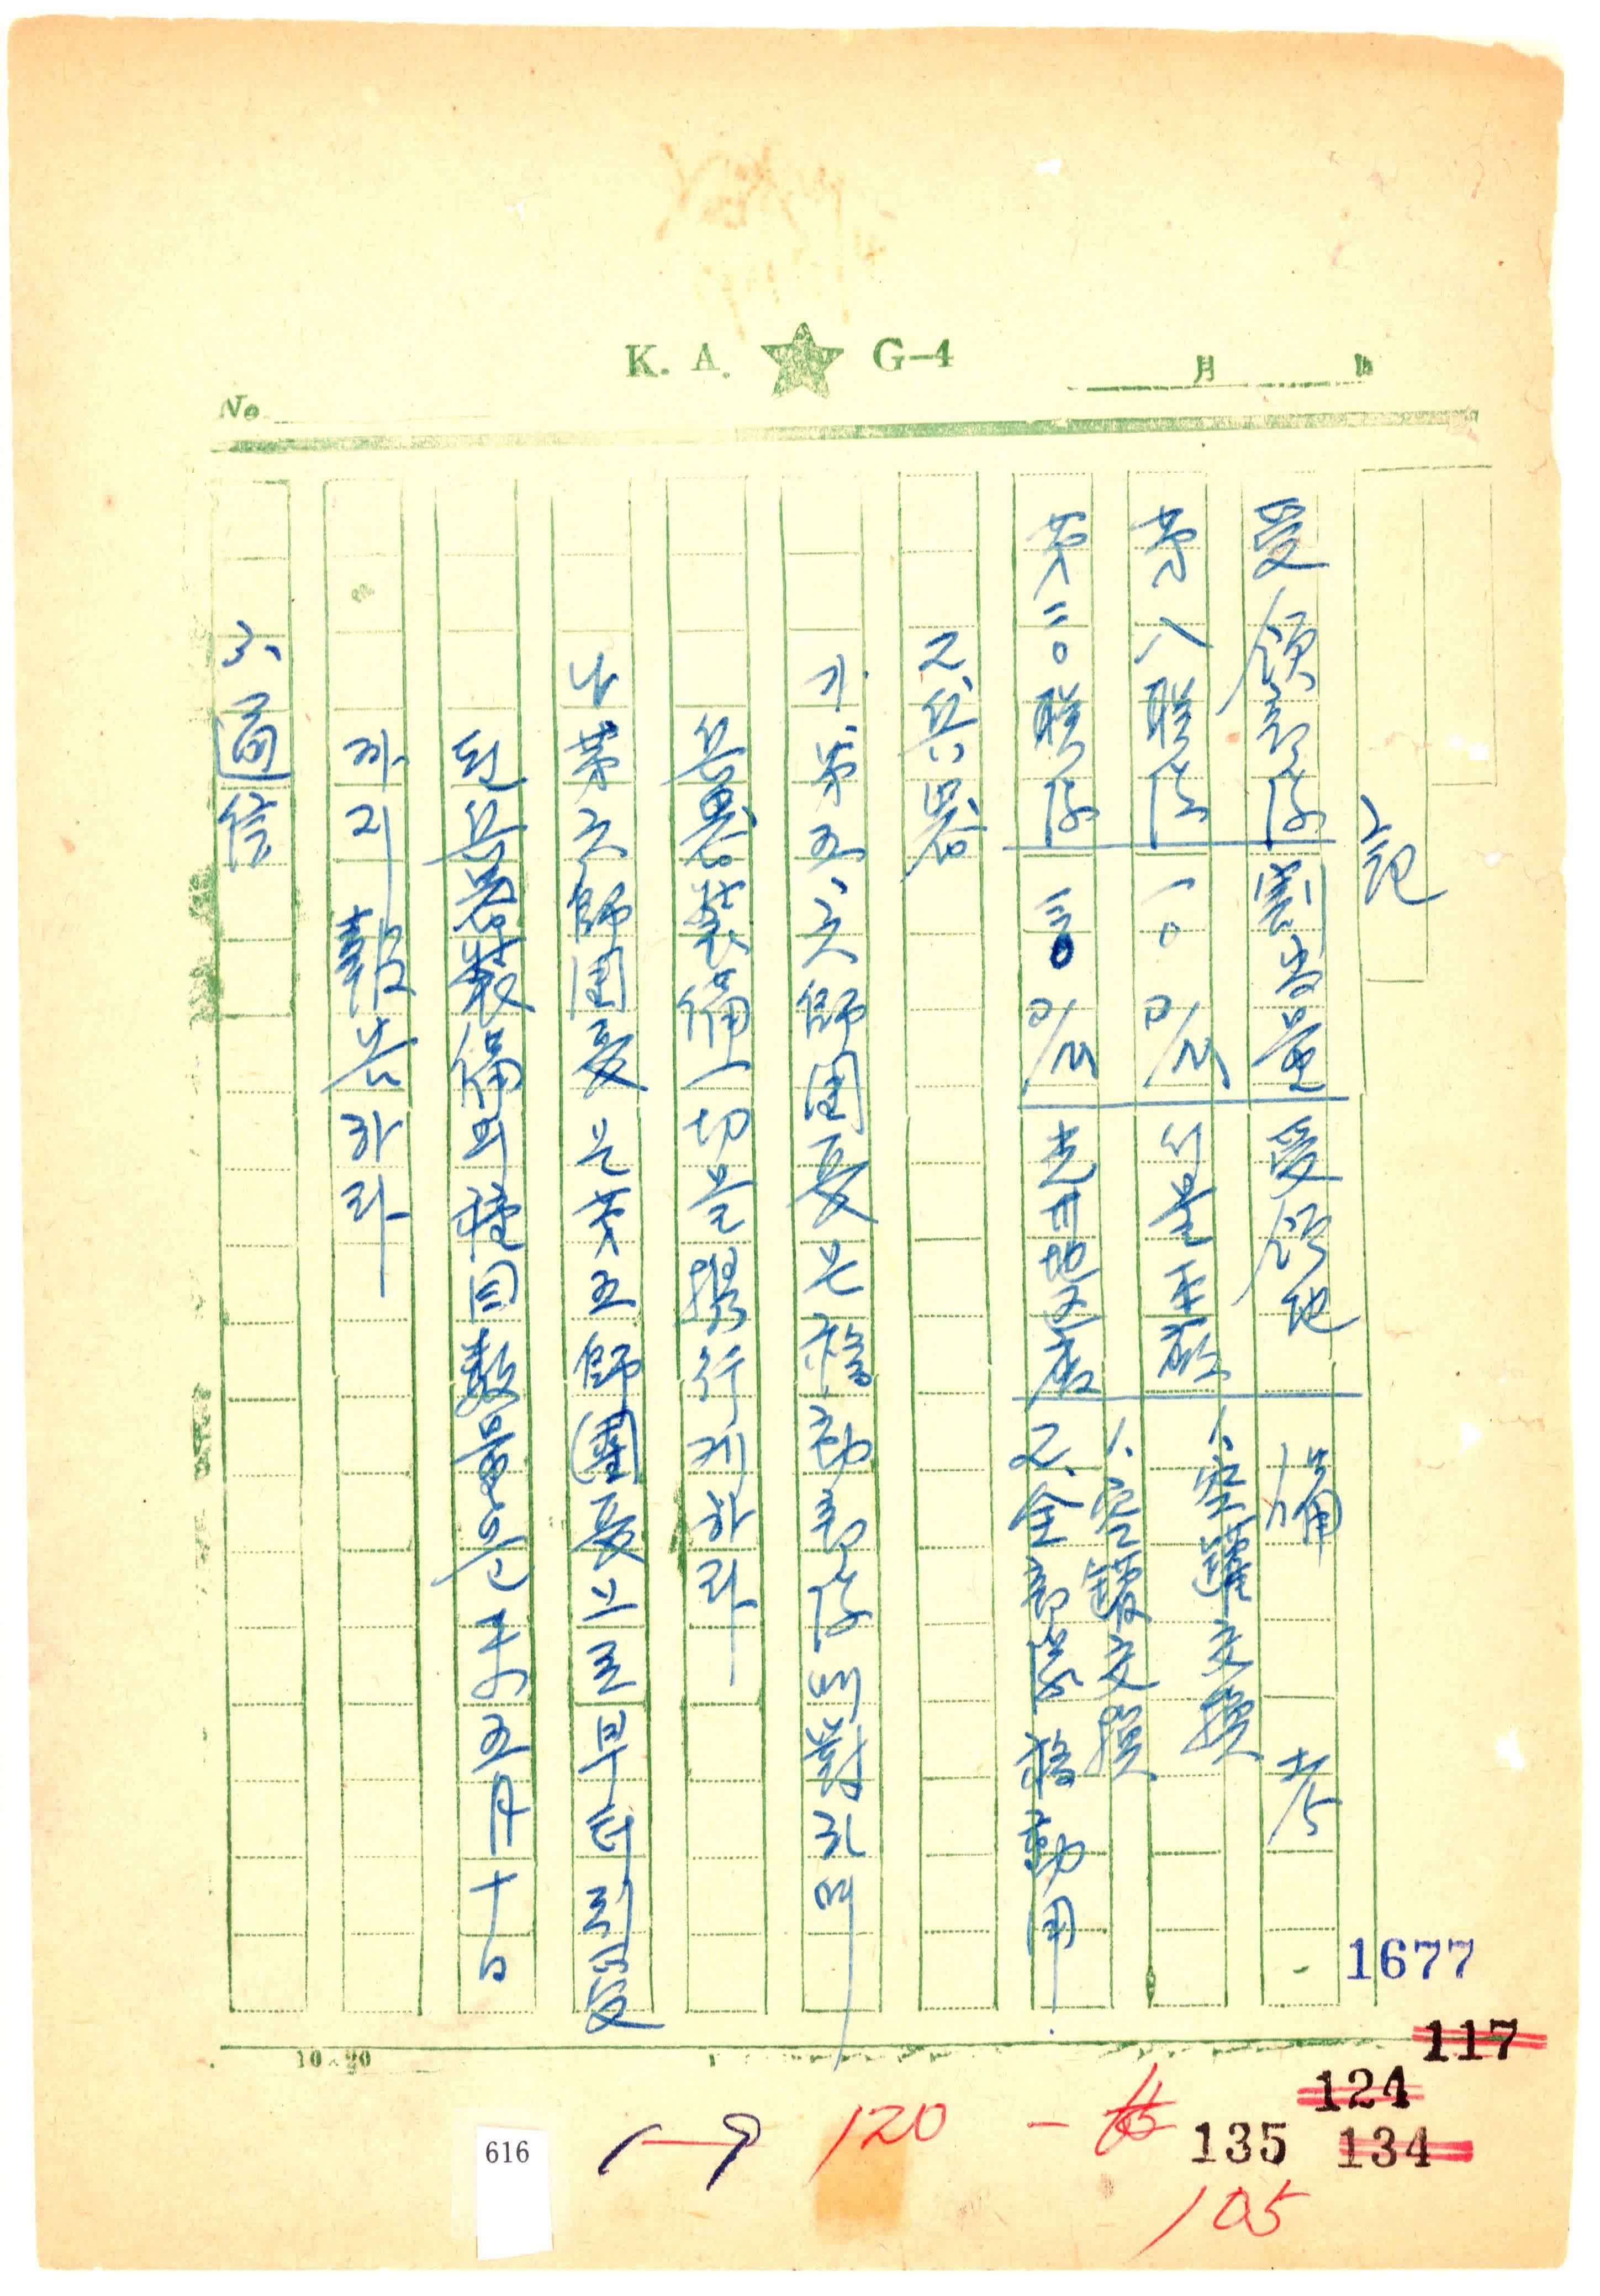 K. A. ★ G-4
月 日
No
記
受領部隊 割当量 受領地 備考
第八聯隊 一〇마일 서울正敎 1、空罐交換
第二〇聯隊 三〇마일 光州地区廠 1、空罐交換
2、全部隊移動用
2、兵器
가. 第五、六師団長은 移動部隊에 對하여
兵器装備一切을 携行케하라
나 第六師団長은 第五師團長으로부터 引受
된 兵器装備의 種目数量을 来五月十日
까지 報告하라
3、通信
1677
10×20
117
124
135 134
120 -
105
616